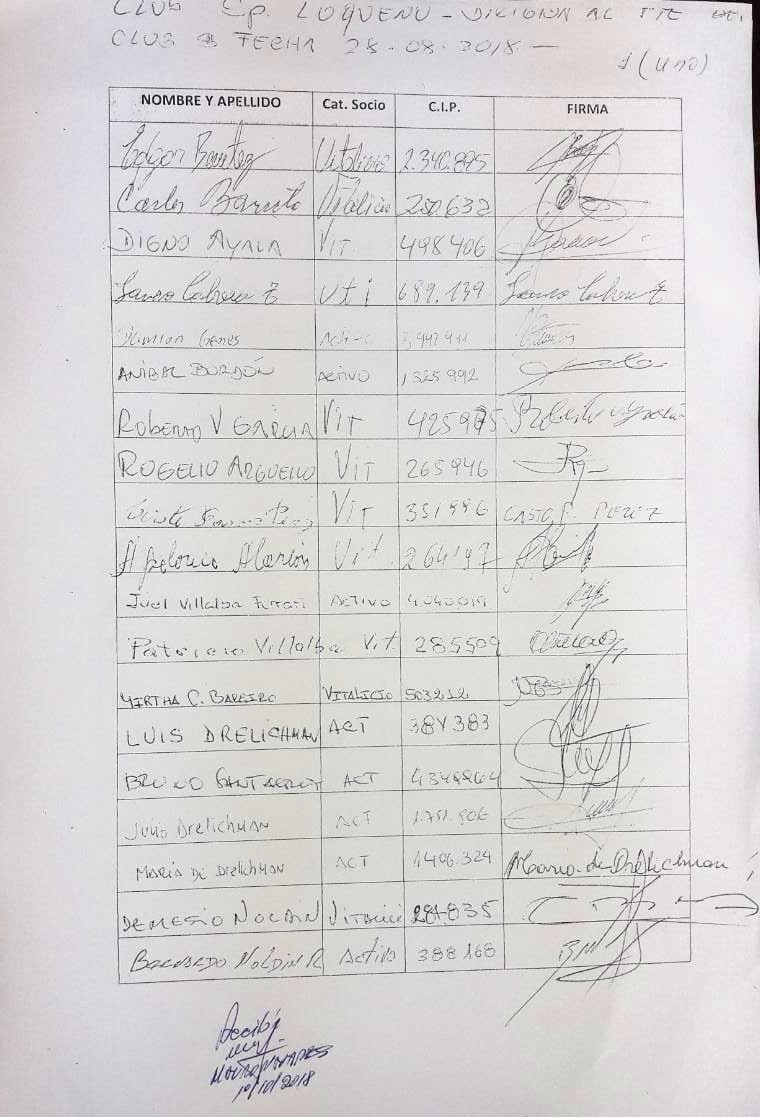 CLUB Cp. LOQUEÑO - DIRIGIDA AL PTE DEL
CLUB FECHA 28-08-2018-
1 (uno)
NOMBRE Y APELLIDO Cat. Socio C.I.P. FIRMA
Edgar Benitez Vitalicio 2.340.895
Carlos Barreto Vitalicio 250.632
DIGNO AYALA VIT. 498406
Cabrera Z Vti 689.139 Cabrera Z
Damian Genes Activo
ANIBAL BORDÓN ACTIVO 1325992
ROBERTO V GARCIA VIT 425975
ROGELIO ARGUELLO VIT 265946
VIT 351996 CASTO P. PEREZ
Apolonio Alarcón Vit. 264197
Juel Villalba Ferrari ACTIVO 4040019
Patricio Villalba Vit. 285509
MIRTHA C. BAREIRO VITALICIO 503212
LUIS DRELICHMAN ACT 384383
BRUNO SANTACRUZ ACT 4349264
Julio Drelichman ACT 1.751.806
MARIA DE DRELICHMAN ACT 1406.324 Maria de Drelichman
DEMESIO NOLDIN Vitalicio 281.835
BERNARDO NOLDIN R Activo 388168
Recibí
10/10/2018